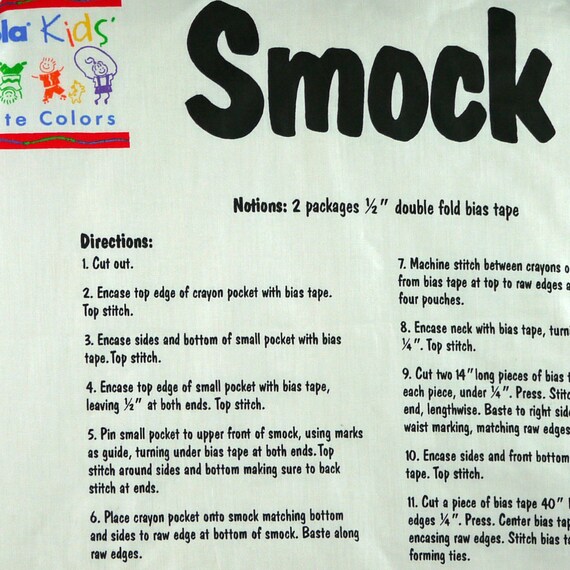 la® Kids'
te Colors
Smock
Notions: 2 packages ½" double fold bias tape
Directions:
1. Cut out.
2. Encase top edge of crayon pocket with bias tape.
Top stitch.
3. Encase sides and bottom of small pocket with bias
tape. Top stitch.
4. Encase top edge of small pocket with bias tape,
leaving ½" at both ends. Top stitch.
5. Pin small pocket to upper front of smock, using marks
as guide, turning under bias tape at both ends. Top
stitch around sides and bottom making sure to back
stitch at ends.
6. Place crayon pocket onto smock matching bottom
and sides to raw edge at bottom of smock. Baste along
raw edges.
7. Machine stitch between crayons o
from bias tape at top to raw edges a
four pouches.
8. Encase neck with bias tape, turn
¼". Top stitch.
9. Cut two 14" long pieces of bias t
each piece, under ¼". Press. Stitc
end, lengthwise. Baste to right side
waist marking, matching raw edges
10. Encase sides and front bottom
tape. Top stitch.
11. Cut a piece of bias tape 40"
edges ¼". Press. Center bias tap
encasing raw edges. Stitch bias t
forming ties.